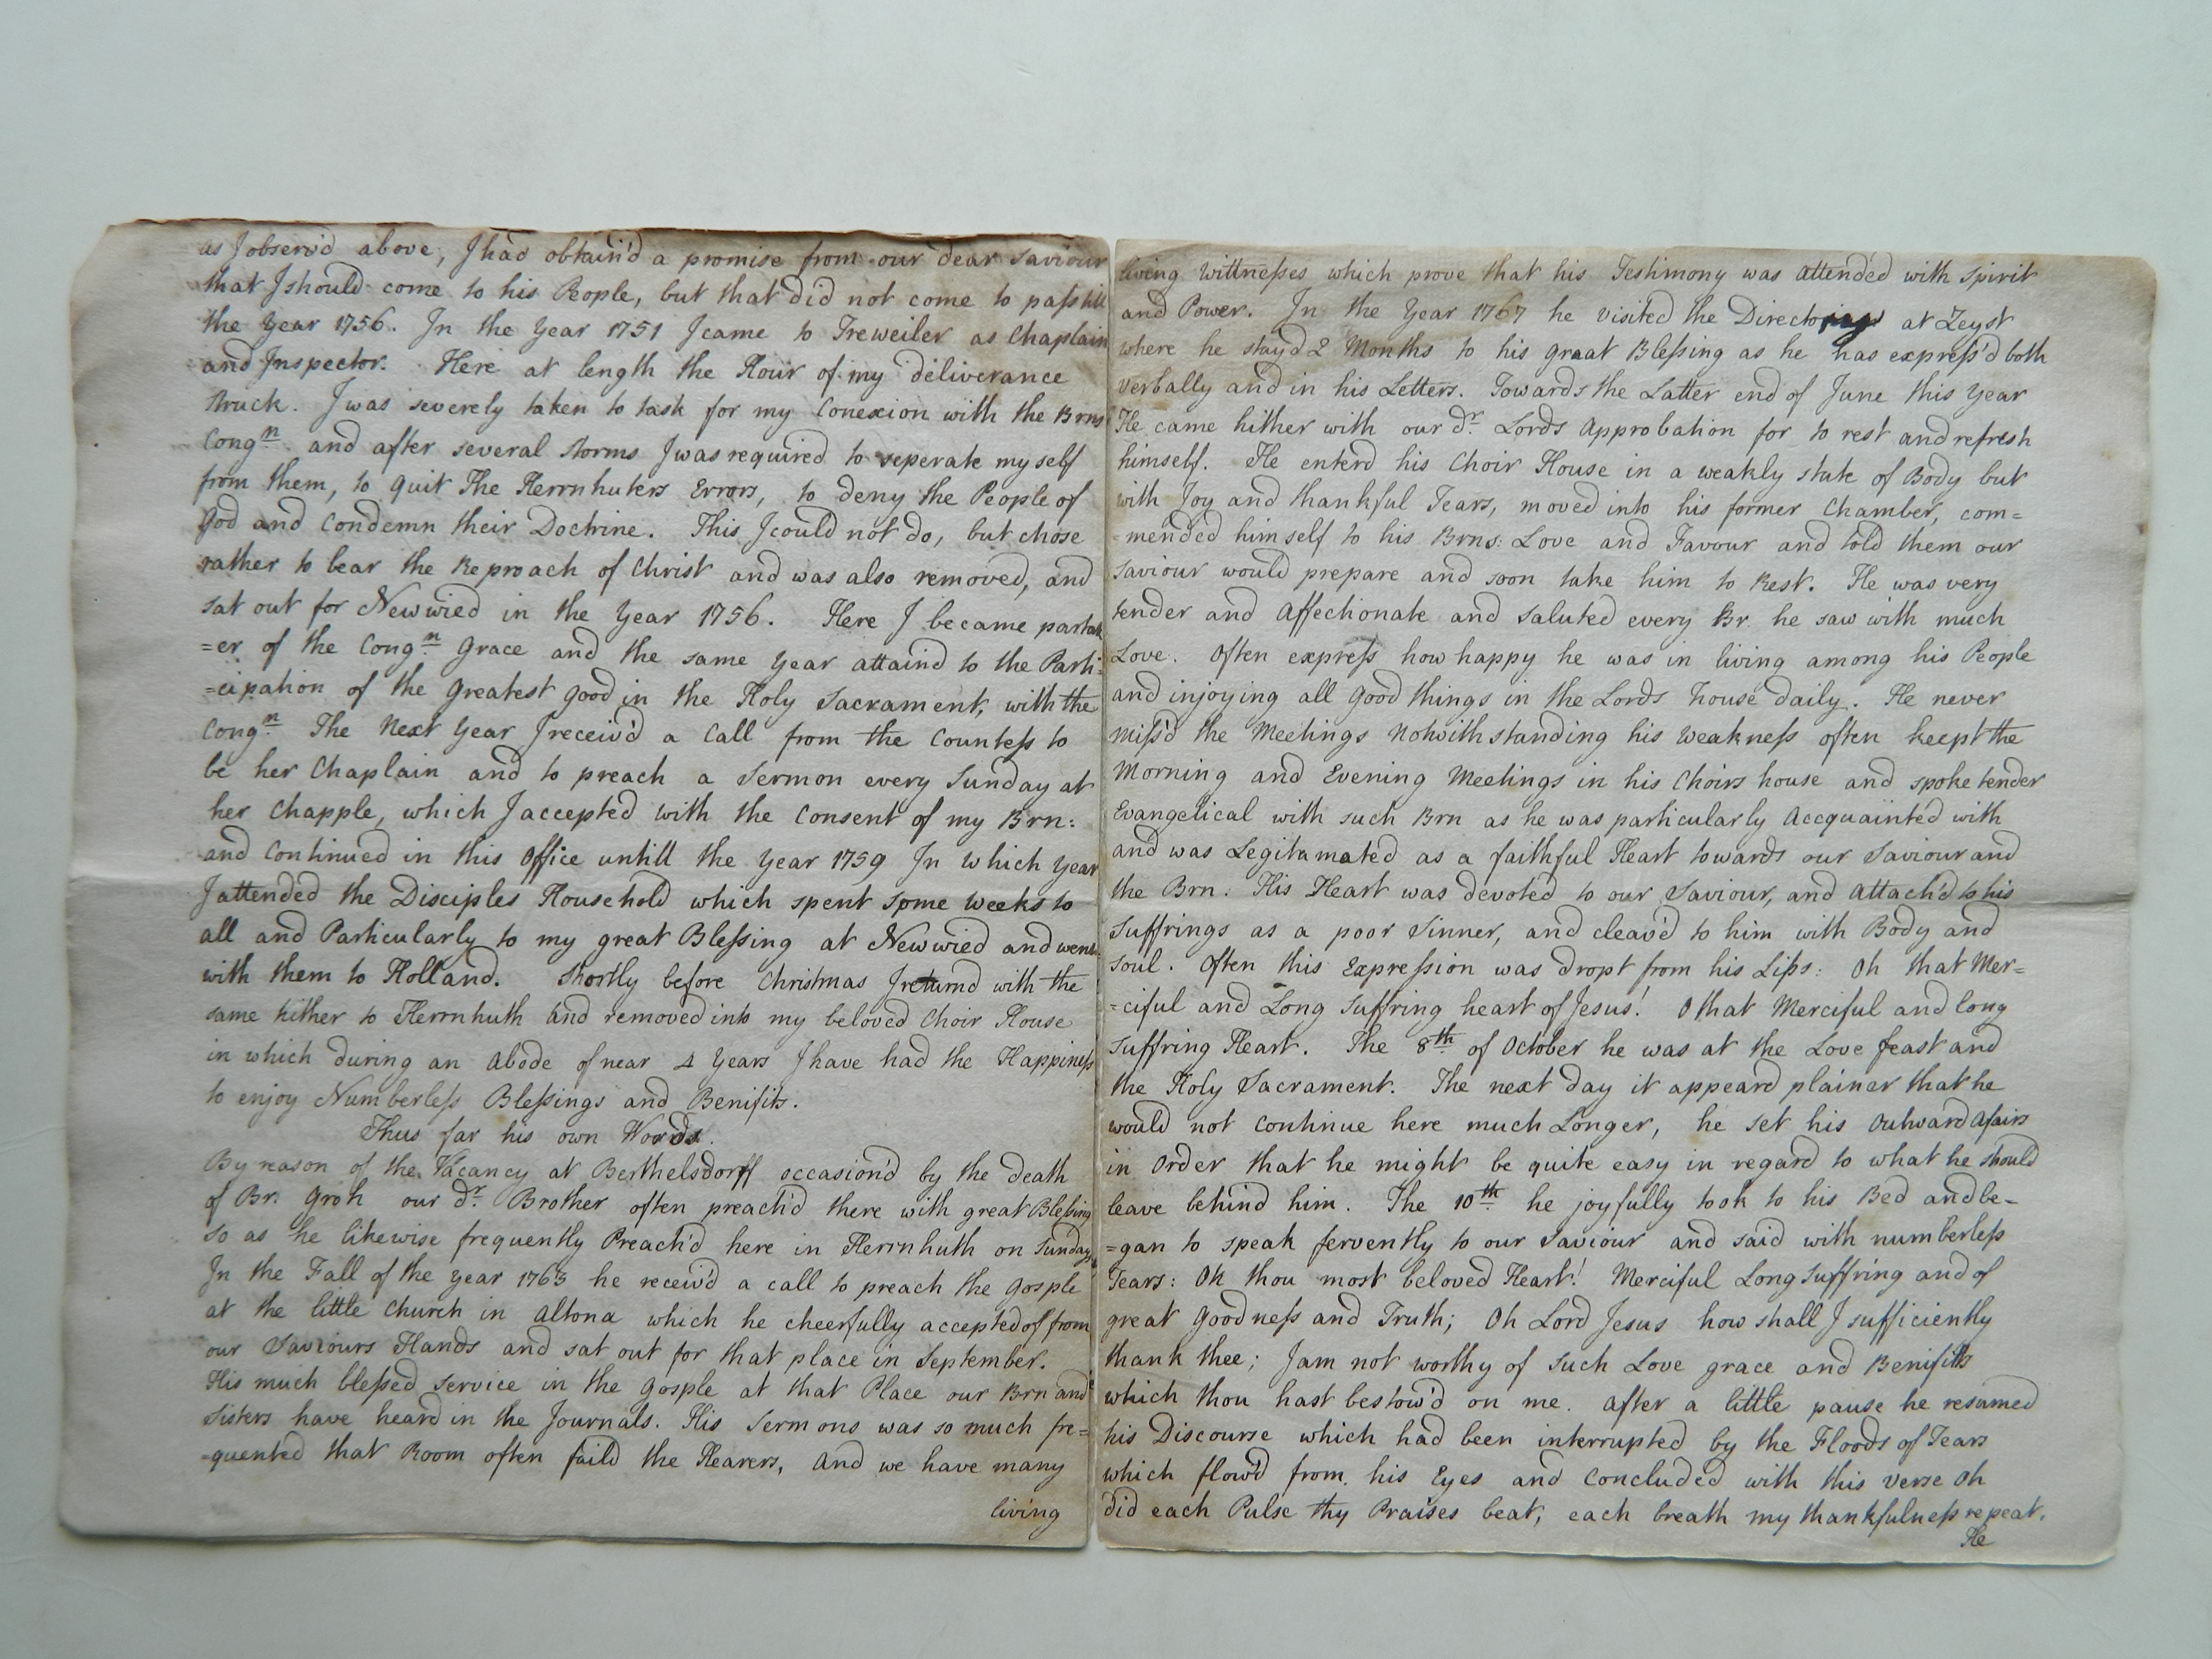 as I observ'd above, I had obtain'd a promise from our dear Saviour
that I should come to his People, but that did not come to pass till
the Year 1756. In the Year 1751 I came to Treweiler as Chaplain
and Inspector. Here at length the Hour of my deliverance
struck. I was severely taken to task for my Conexion with the Brns
Congn. and after several storms I was required to seperate my self
from them, to quit The Herrnhuters Errors, to deny the People of
God and Condemn their Doctrine. This I could not do, but chose
rather to bear the Reproach of Christ and was also removed, and
sat out for Newwied in the Year 1756. Here I became partak
=er of the Congn. Grace and the same Year attaind to the Parti=
=cipation of the Greatest Good in the Holy Sacrament, with the
Congn. The Next Year I receiv'd a Call from the Countess to
be her Chaplain and to preach a Sermon every Sunday at
her Chapple, which I accepted with the Consent of my Brn:
and Continued in this Office untill the Year 1759 In which Year
I attended the Disciples Household which spent some weeks to
all and Particularly to my great Blessing at Newwied and went
with them to Holland. Shortly before Christmas I returnd with the
same hither to Herrnhuth and removed into my beloved Choir House
in which during an Abode of near 4 Years I have had the Happiness
to enjoy Numberless Blessings and Benifits.
Thus far his own Words.
By reason of the Vacancy at Berthelsdorff occasion'd by the death
of Br. Groh our dr. Brother often preach'd there with great Blessing
so as he likewise frequently Preach'd here in Herrnhuth on Sundays
In the Fall of the Year 1763 he receiv'd a call to preach the Gosple
at the little Church in Altona which he cheerfully accepted of from
our Saviours Hands and sat out for that place in September.
His much blessed service in the Gosple at that Place our Brn and
Sisters have heard in the Journals. His Sermons was so much fre=
=quented that Room often faild the Hearers, and we have many
living
living Wittnesses which prove that his Testimony was attended with Spirit
and Power. In the Year 1767 he visited the at Zeyst
where he stay'd 2 Months to his great Blessing as he has express'd both
verbally and in his Letters. Towards the Latter end of June this Year
He came hither with our dr. Lords Approbation for to rest and refresh
himself. He enterd his Choir House in a weakly state of Body but
with Joy and thankful Tears, moved into his former Chamber, com=
=mended himself to his Brns: Love and Favour and told them our
Saviour would prepare and soon take him to Rest. He was very
tender and Affectionate and Saluted every Br. he saw with much
Love. Often express how happy he was in living among his People
and injoying all Good things in the Lords house daily. He never
miss'd the Meetings Notwithstanding his Weakness often keept the
Morning and Evening Meetings in his Choirs house and spoke tender
Evangelical with such Brn as he was particularly Accquainted with
and was Legitamated as a faithful Heart towards our Saviour and
the Brn: His Heart was devoted to our Saviour, and Attach'd to his
Suffrings as a poor Sinner, and cleav'd to him with Body and
Soul. Often this Expression was dropt from his Lips: Oh that Mer=
=ciful and Long Suffring heart of Jesus! O that Merciful and long
Suffring Heart. The 8th. of October he was at the Love feast and
the Holy Sacrament. The next day it appeard plainer that he
would not Continue here much Longer, he set his Outward Afairs
in Order that he might be quite easy in regard to what he should
leave behind him. The 10th. he joyfully took to his Bed and be=
=gan to speak fervently to our Saviour and said with numberless
Tears: Oh thou most beloved Heart! Merciful Long Suffring and of
great Goodness and Truth; Oh Lord Jesus how shall I sufficiently
thank thee; I am not worthy of such Love grace and Benifits
which thou hast bestow'd on me. After a little pause he resumed
his Discourse which had been interrupted by the Floods of Tears
which flow'd from his Eyes and Concluded with this Verse Oh
did each Pulse thy Praises beat, each breath my thankfulness repeat.
He